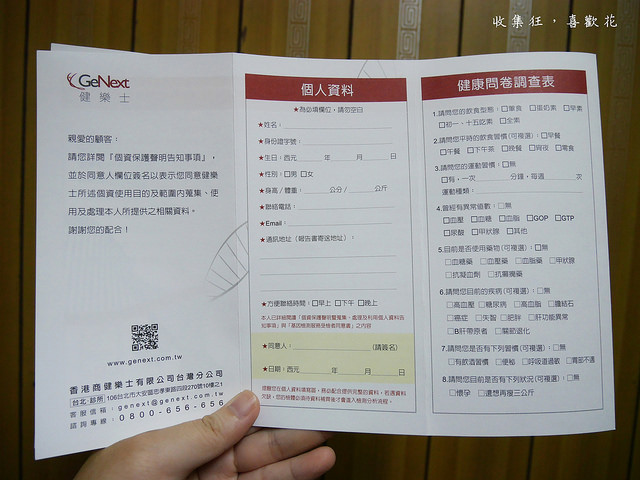 收集狂，喜歡花
GeNext
健樂士
親愛的顧客：
請您詳閱「個資保護聲明告知事項」，
並於同意人欄位簽名以表示您同意健樂
士所述個資使用目的及範圍內蒐集、使
用及處理本人所提供之相關資料。
謝謝您的配合！
www.genext.com.tw
香港商健樂士有限公司台灣分公司
台北．診所 106台北市大安區忠孝東路四段270號10樓之1
客服信箱：genext@genext.com.tw
諮詢專線：0800-656-656
個人資料
★為必填欄位，請勿空白
★姓名：
★身份證字號：
★生日：西元 年 月 日
★性別：□男 □女
★身高 / 體重： 公分 / 公斤
★聯絡電話：
★Email：
★通訊地址（報告書寄送地址）：
★方便聯絡時間：□早上 □下午 □晚上
本人已詳細閱讀「個資保護聲明暨蒐集、處理及利用個人資料告
知事項」與「基因檢測服務受檢者同意書」之內容
★同意人： (請簽名)
★日期：西元 年 月 日
健康問卷調查表
1.請問您的飲食型態：□葷食 □蛋奶素 □早素
□初一、十五吃素 □全素
2.請問您平時的飲食習慣(可複選)：□早餐
□午餐 □下午茶 □晚餐 □宵夜 □零食
3.請問您的運動習慣：□無
□有，一次 分鐘，每週 次
運動種類：
4.曾經有異常指數：□無
□血壓 □血糖 □血脂 □GOP □GTP
□尿酸 □甲狀腺 □其他
5.目前是否使用藥物(可複選)：□無
□血糖藥 □血壓藥 □血脂藥 □甲狀腺
□抗凝血劑 □抗癲癇藥
6.請問您目前的疾病(可複選)：□無
□高血壓 □糖尿病 □高血脂 □腎結石
□癌症 □失智 □肥胖 □肝功能異常
□B肝帶原者 □關節退化
7.請問您是否有下列習慣(可複選)：□無
□有飲酒習慣 □便秘 □呼吸道過敏 □胃部不適
8.請問您目前是否有下列狀況(可複選)：□無
□懷孕 □還想再瘦三公斤